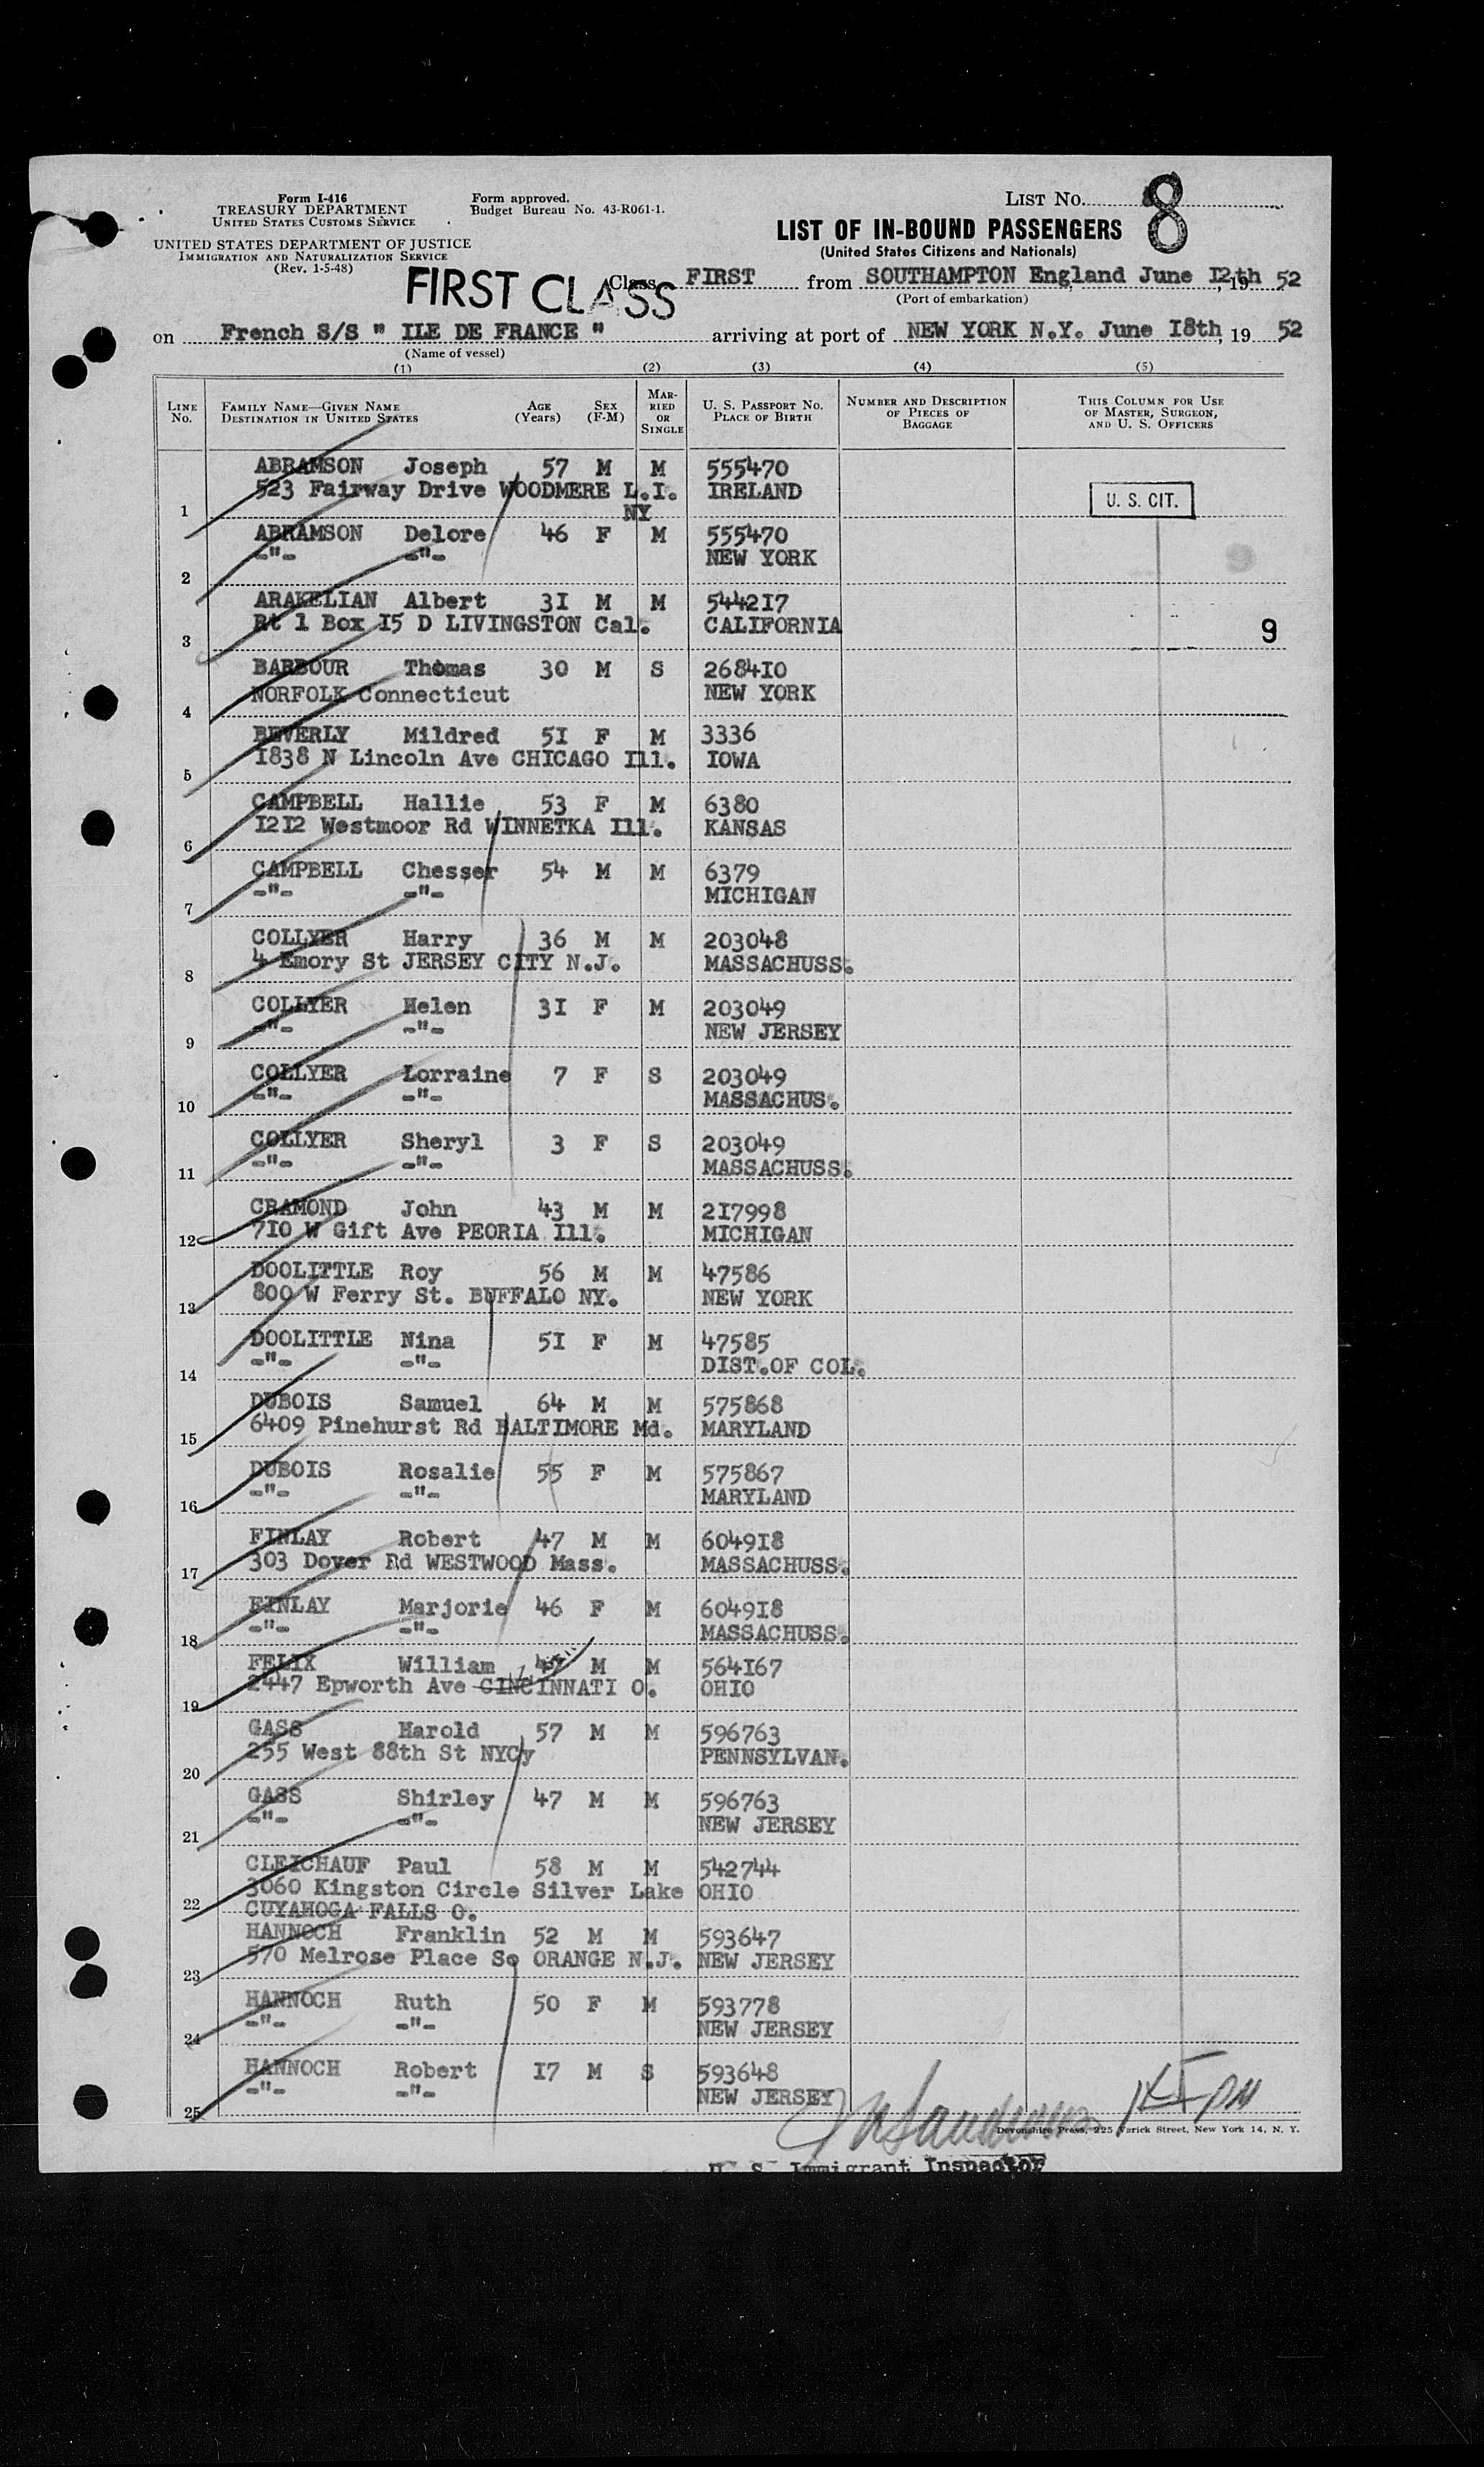 Form I-416
TREASURY DEPARTMENT
UNITED STATES CUSTOMS SERVICE
Form approved.
Budget Bureau No. 43-R061-1.
LIST NO. 8
UNITED STATES DEPARTMENT OF JUSTICE
IMMIGRATION AND NATURALIZATION SERVICE
(Rev. 1-5-48)
LIST OF IN-BOUND PASSENGERS
(United States Citizens and Nationals)
FIRST CLASS
Class FIRST from SOUTHAMPTON England June 12th, 19 52
(Port of embarkation)
on French S/S " ILE DE FRANCE " arriving at port of NEW YORK N.Y. June 18th, 19 52
(Name of vessel)
(1) (2) (3) (4) (5)
LINE NO.
FAMILY NAME—GIVEN NAME
DESTINATION IN UNITED STATES
AGE (Years)
SEX (F-M)
MARRIED OR SINGLE
U. S. PASSPORT NO.
PLACE OF BIRTH
NUMBER AND DESCRIPTION OF PIECES OF BAGGAGE
THIS COLUMN FOR USE OF MASTER, SURGEON, AND U. S. OFFICERS
ABRAMSON Joseph 57 M M 555470
1 523 Fairway Drive WOODMERE L.I. NY IRELAND
U. S. CIT.
ABRAMSON Delore 46 F M 555470
2 -"- -"- NEW YORK
ARAKELIAN Albert 3I M M 5442I7
3 Rt 1 Box I5 D LIVINGSTON Cal. CALIFORNIA
9
BARBOUR Thomas 30 M S 2684I0
4 NORFOLK Connecticut NEW YORK
BEVERLY Mildred 5I F M 3336
5 I838 N Lincoln Ave CHICAGO Ill. IOWA
CAMPBELL Hallie 53 F M 6380
6 I2I2 Westmoor Rd WINNETKA Ill. KANSAS
CAMPBELL Chesser 54 M M 6379
7 -"- -"- MICHIGAN
COLLYER Harry 36 M M 203048
8 4 Emory St JERSEY CITY N.J. MASSACHUSS.
COLLYER Helen 3I F M 203049
9 -"- -"- NEW JERSEY
COLLYER Lorraine 7 F S 203049
10 -"- -"- MASSACHUS.
COLLYER Sheryl 3 F S 203049
11 -"- -"- MASSACHUSS.
CRAMOND John 43 M M 2I7998
12 7I0 W Gift Ave PEORIA Ill. MICHIGAN
DOOLITTLE Roy 56 M M 47586
13 800 W Ferry St. BUFFALO NY. NEW YORK
DOOLITTLE Nina 5I F M 47585
14 -"- -"- DIST.OF COL.
DUBOIS Samuel 64 M M 575868
15 6409 Pinehurst Rd BALTIMORE Md. MARYLAND
DUBOIS Rosalie 55 F M 575867
16 -"- -"- MARYLAND
FINLAY Robert 47 M M 6049I8
17 303 Dover Rd WESTWOOD Mass. MASSACHUSS.
FINLAY Marjorie 46 F M 6049I8
18 -"- -"- MASSACHUSS.
FELIX William M M 564I67
19 2447 Epworth Ave CINCINNATI O. OHIO
GASS Harold 57 M M 596763
20 255 West 88th St NYCy PENNSYLVAN.
GASS Shirley 47 M M 596763
21 -"- -"- NEW JERSEY
CLEICHAUF Paul 58 M M 542744
22 3060 Kingston Circle Silver Lake OHIO
CUYAHOGA FALLS O.
HANNOCH Franklin 52 M M 593647
23 570 Melrose Place So ORANGE N.J. NEW JERSEY
HANNOCH Ruth 50 F M 593778
24 -"- -"- NEW JERSEY
HANNOCH Robert I7 M S 593648
25 -"- -"- NEW JERSEY
Devonshire Press, 225 Varick Street, New York 14, N. Y.
U. S. Immigrant Inspector